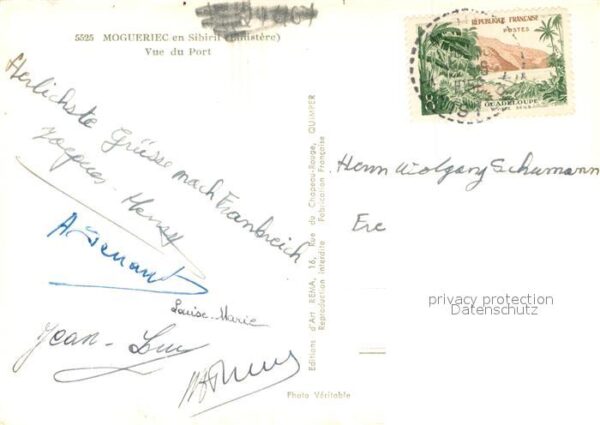 5525 MOGUERIEC en Sibiril (Finistère)
Vue du Port
REPUBLIQUE FRANÇAISE
POSTES
8F
GUADELOUPE
Herlichste Grüsse nach Frankreich
Jacques-Henry
Louise-Marie
Jean-Luc
Editions d'Art RENA, 16, Rue du Chapeau-Rouge, QUIMPER
Reproduction interdite Fabrication Française
Photo Véritable
Herrn Wolfgang Schumann
privacy protection
Datenschutz